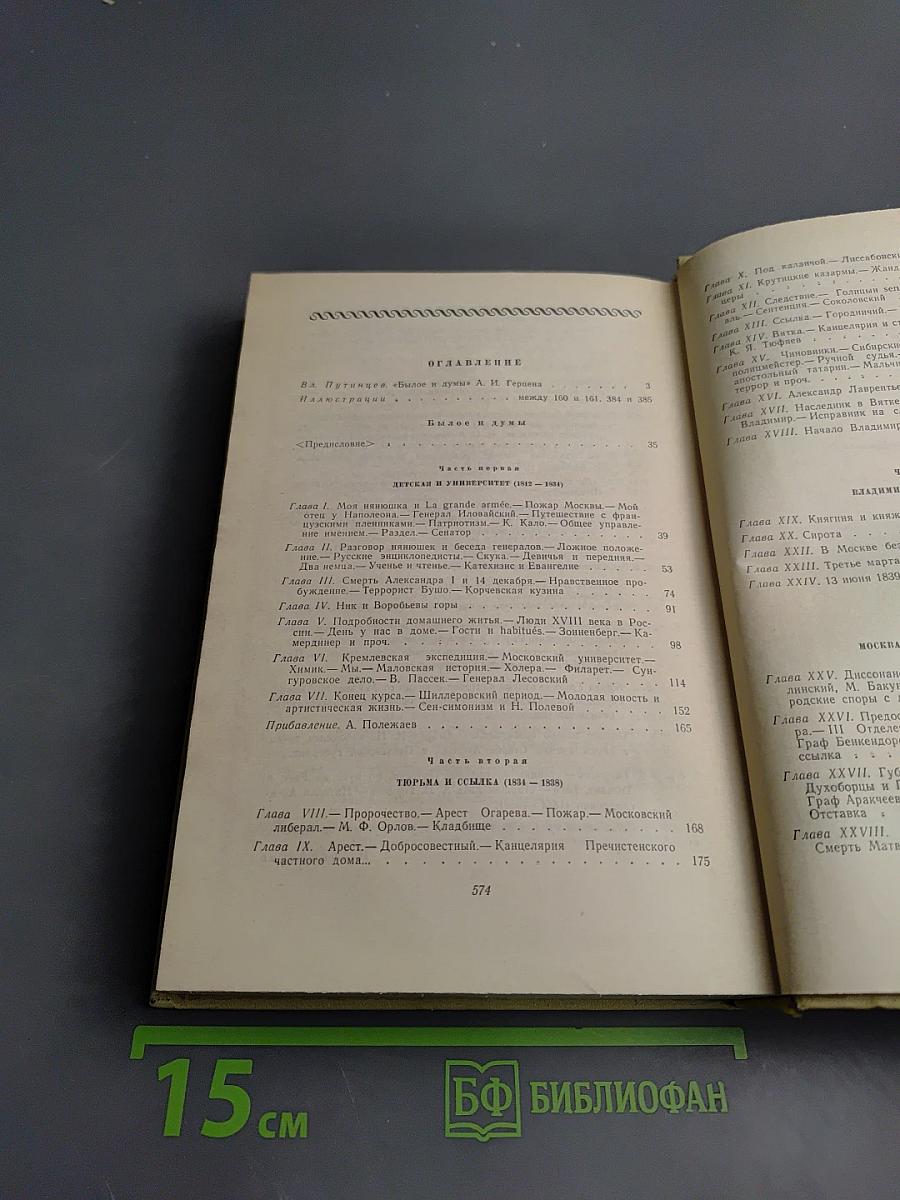 ОГЛАВЛЕНИЕ
Вл. Путинцев. «Былое и думы» А. И. Герцена . . . . . . . 3
Иллюстрации . . . . . . . . . . между 160 и 161, 384 и 385
Былое и думы
<Предисловие> . . . . . . . . . . . . . . . . . . 35
Часть первая
ДЕТСКАЯ И УНИВЕРСИТЕТ (1812 — 1834)
Глава I. Моя нянюшка и La grande armée.— Пожар Москвы.— Мой
отец у Наполеона.— Генерал Иловайский.— Путешествие с фран-
цузскими пленниками.— Патриотизм.— К. Кало.— Общее управле-
ние имением.— Раздел.— Сенатор . . . . . . . . . . . . 39
Глава II. Разговор нянюшек и беседа генералов.— Ложное положе-
ние.— Русские энциклопедисты.— Скука.— Девичья и передняя.—
Два немца.— Ученье и чтенье.— Катехизис и Евангелие . . . . . 53
Глава III. Смерть Александра I и 14 декабря.— Нравственное про-
буждение.— Террорист Бушо.— Корчевская кузина . . . . . . 74
Глава IV. Ник и Воробьевы горы . . . . . . . . . . . . . 91
Глава V. Подробности домашнего житья.— Люди XVIII века в Рос-
сии.— День у нас в доме.— Гости и habitués.— Зонненберг.— Ка-
мердинер и проч. . . . . . . . . . . . . . . . . . . . 98
Глава VI. Кремлевская экспедиция.— Московский университет.—
Химик.— Мы.— Маловская история.— Холера.— Филарет.— Сун-
гуровское дело.— В. Пассек.— Генерал Лесовский . . . . . . 114
Глава VII. Конец курса.— Шиллеровский период.— Молодая юность и
артистическая жизнь.— Сен-симонизм и Н. Полевой . . . . . . . 152
Прибавление. А. Полежаев . . . . . . . . . . . . . . . . 165
Часть вторая
ТЮРЬМА И ССЫЛКА (1834 — 1838)
Глава VIII.— Пророчество.— Арест Огарева.— Пожар.— Московский
либерал.— М. Ф. Орлов.— Кладбище . . . . . . . . . . . . 168
Глава IX. Арест.— Добросовестный.— Канцелярия Пречистенского
частного дома... . . . . . . . . . . . . . . . . . . . . 175
574
Глава X. Под каланчой.— Лиссабонски
Глава XI. Крутицкие казармы.— Жанд
церы . . . .
Глава XII. Следствие.— Голицын sen
аль.— Сентенция.— Соколовский
Глава XIII. Ссылка.— Городничий.—
Глава XIV. Вятка.— Канцелярия и ст
К. Я. Тюфяев . . . .
Глава XV. Чиновники.— Сибирские
полицмейстер.— Ручной судья.—
апостольный татарин.— Мальчи
террор и проч. . . . .
Глава XVI. Александр Лаврентье
Глава XVII. Наследник в Вятке
Владимир.— Исправник на сл
Глава XVIII. Начало Владимир
Ч
ВЛАДИМИ
Глава XIX. Княгиня и княж
Глава XX. Сирота . . .
Глава XXII. В Москве без
Глава XXIII. Третье марта
Глава XXIV. 13 июня 1839
МОСКВА
Глава XXV. Диссонанс
линский, М. Бакун
родские споры с
Глава XXVI. Предос
ра.— III Отделе
Граф Бенкендор
ссылка . . .
Глава XXVII. Губ
Духоборцы и П
Граф Аракчеев
Отставка .
Глава XXVIII.
Смерть Матв
15 см
БФ БИБЛИОФАН